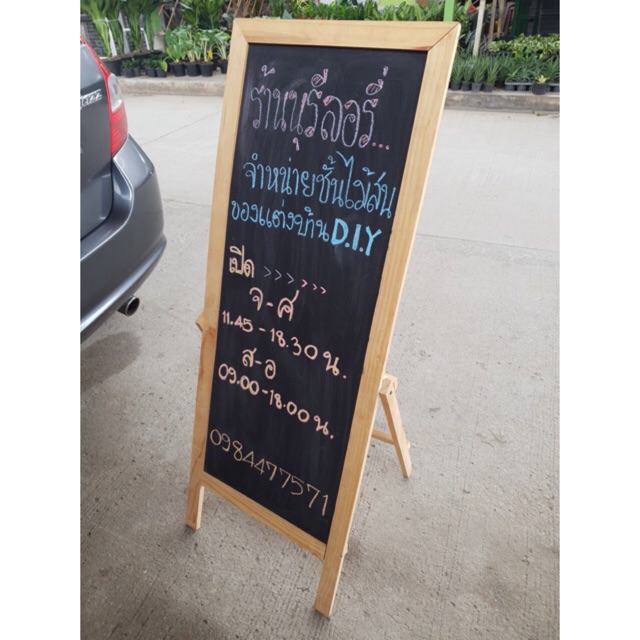 ร้านนุรีลอรี่...
จำหน่ายชั้นไม้สน
ของแต่งบ้าน D.I.Y
เปิด >>>>>>
จ-ศ
11.45-18.30 น.
ส-อ
09.00-18.00 น.
0984477571